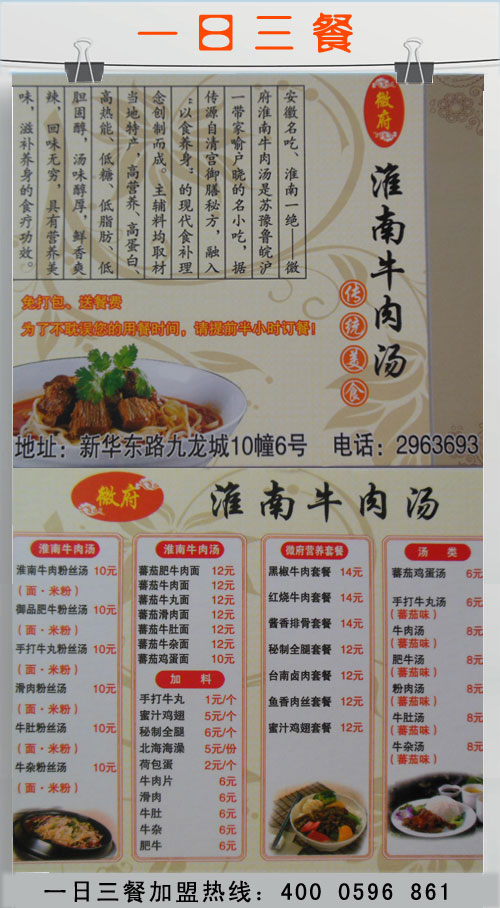 一日三餐
徽府
淮南牛肉汤
传统美食
安徽名吃、淮南一绝——徽
府淮南牛肉汤是苏豫鲁皖沪
一带家喻户晓的名小吃，据
传源自清宫御膳秘方，融入
“以食养身”的现代食补理
念创制而成。主辅料均取材
当地特产，高营养、高蛋白、
高热能，低糖、低脂肪、低
胆固醇，汤味醇厚，鲜香爽
辣，回味无穷，具有营养美
味，滋补养身的食疗功效。
免打包、送餐费
为了不耽误您的用餐时间，请提前半小时订餐！
地址：新华东路九龙城10幢6号 电话：2963693
徽府
淮南牛肉汤
淮南牛肉汤
淮南牛肉粉丝汤 10元
（面·米粉）
御品肥牛粉丝汤 10元
（面·米粉）
手打牛丸粉丝汤 10元
（面·米粉）
滑肉粉丝汤 10元
（面·米粉）
牛肚粉丝汤 10元
（面·米粉）
牛杂粉丝汤 10元
（面·米粉）
淮南牛肉汤
蕃茄肥牛肉面 12元
蕃茄牛肉面 12元
蕃茄牛丸面 12元
蕃茄滑肉面 12元
蕃茄牛肚面 12元
蕃茄牛杂面 12元
蕃茄鸡蛋面 10元
加料
手打牛丸 1元/个
蜜汁鸡翅 5元/个
秘制全腿 6元/个
北海海藻 5元/份
荷包蛋 2元/个
牛肉片 6元
滑肉 6元
牛肚 6元
牛杂 6元
肥牛 6元
徽府营养套餐
黑椒牛肉套餐 14元
红烧牛肉套餐 14元
酱香排骨套餐 14元
秘制全腿套餐 12元
台南卤肉套餐 12元
鱼香肉丝套餐 12元
蜜汁鸡翅套餐 12元
汤类
蕃茄鸡蛋汤 6元
手打牛丸汤 6元
（蕃茄味）
牛肉汤 8元
（蕃茄味）
肥牛汤 8元
（蕃茄味）
粉肉汤 8元
（蕃茄味）
牛肚汤 8元
（蕃茄味）
牛杂汤 8元
（蕃茄味）
一日三餐加盟热线：400 0596 861